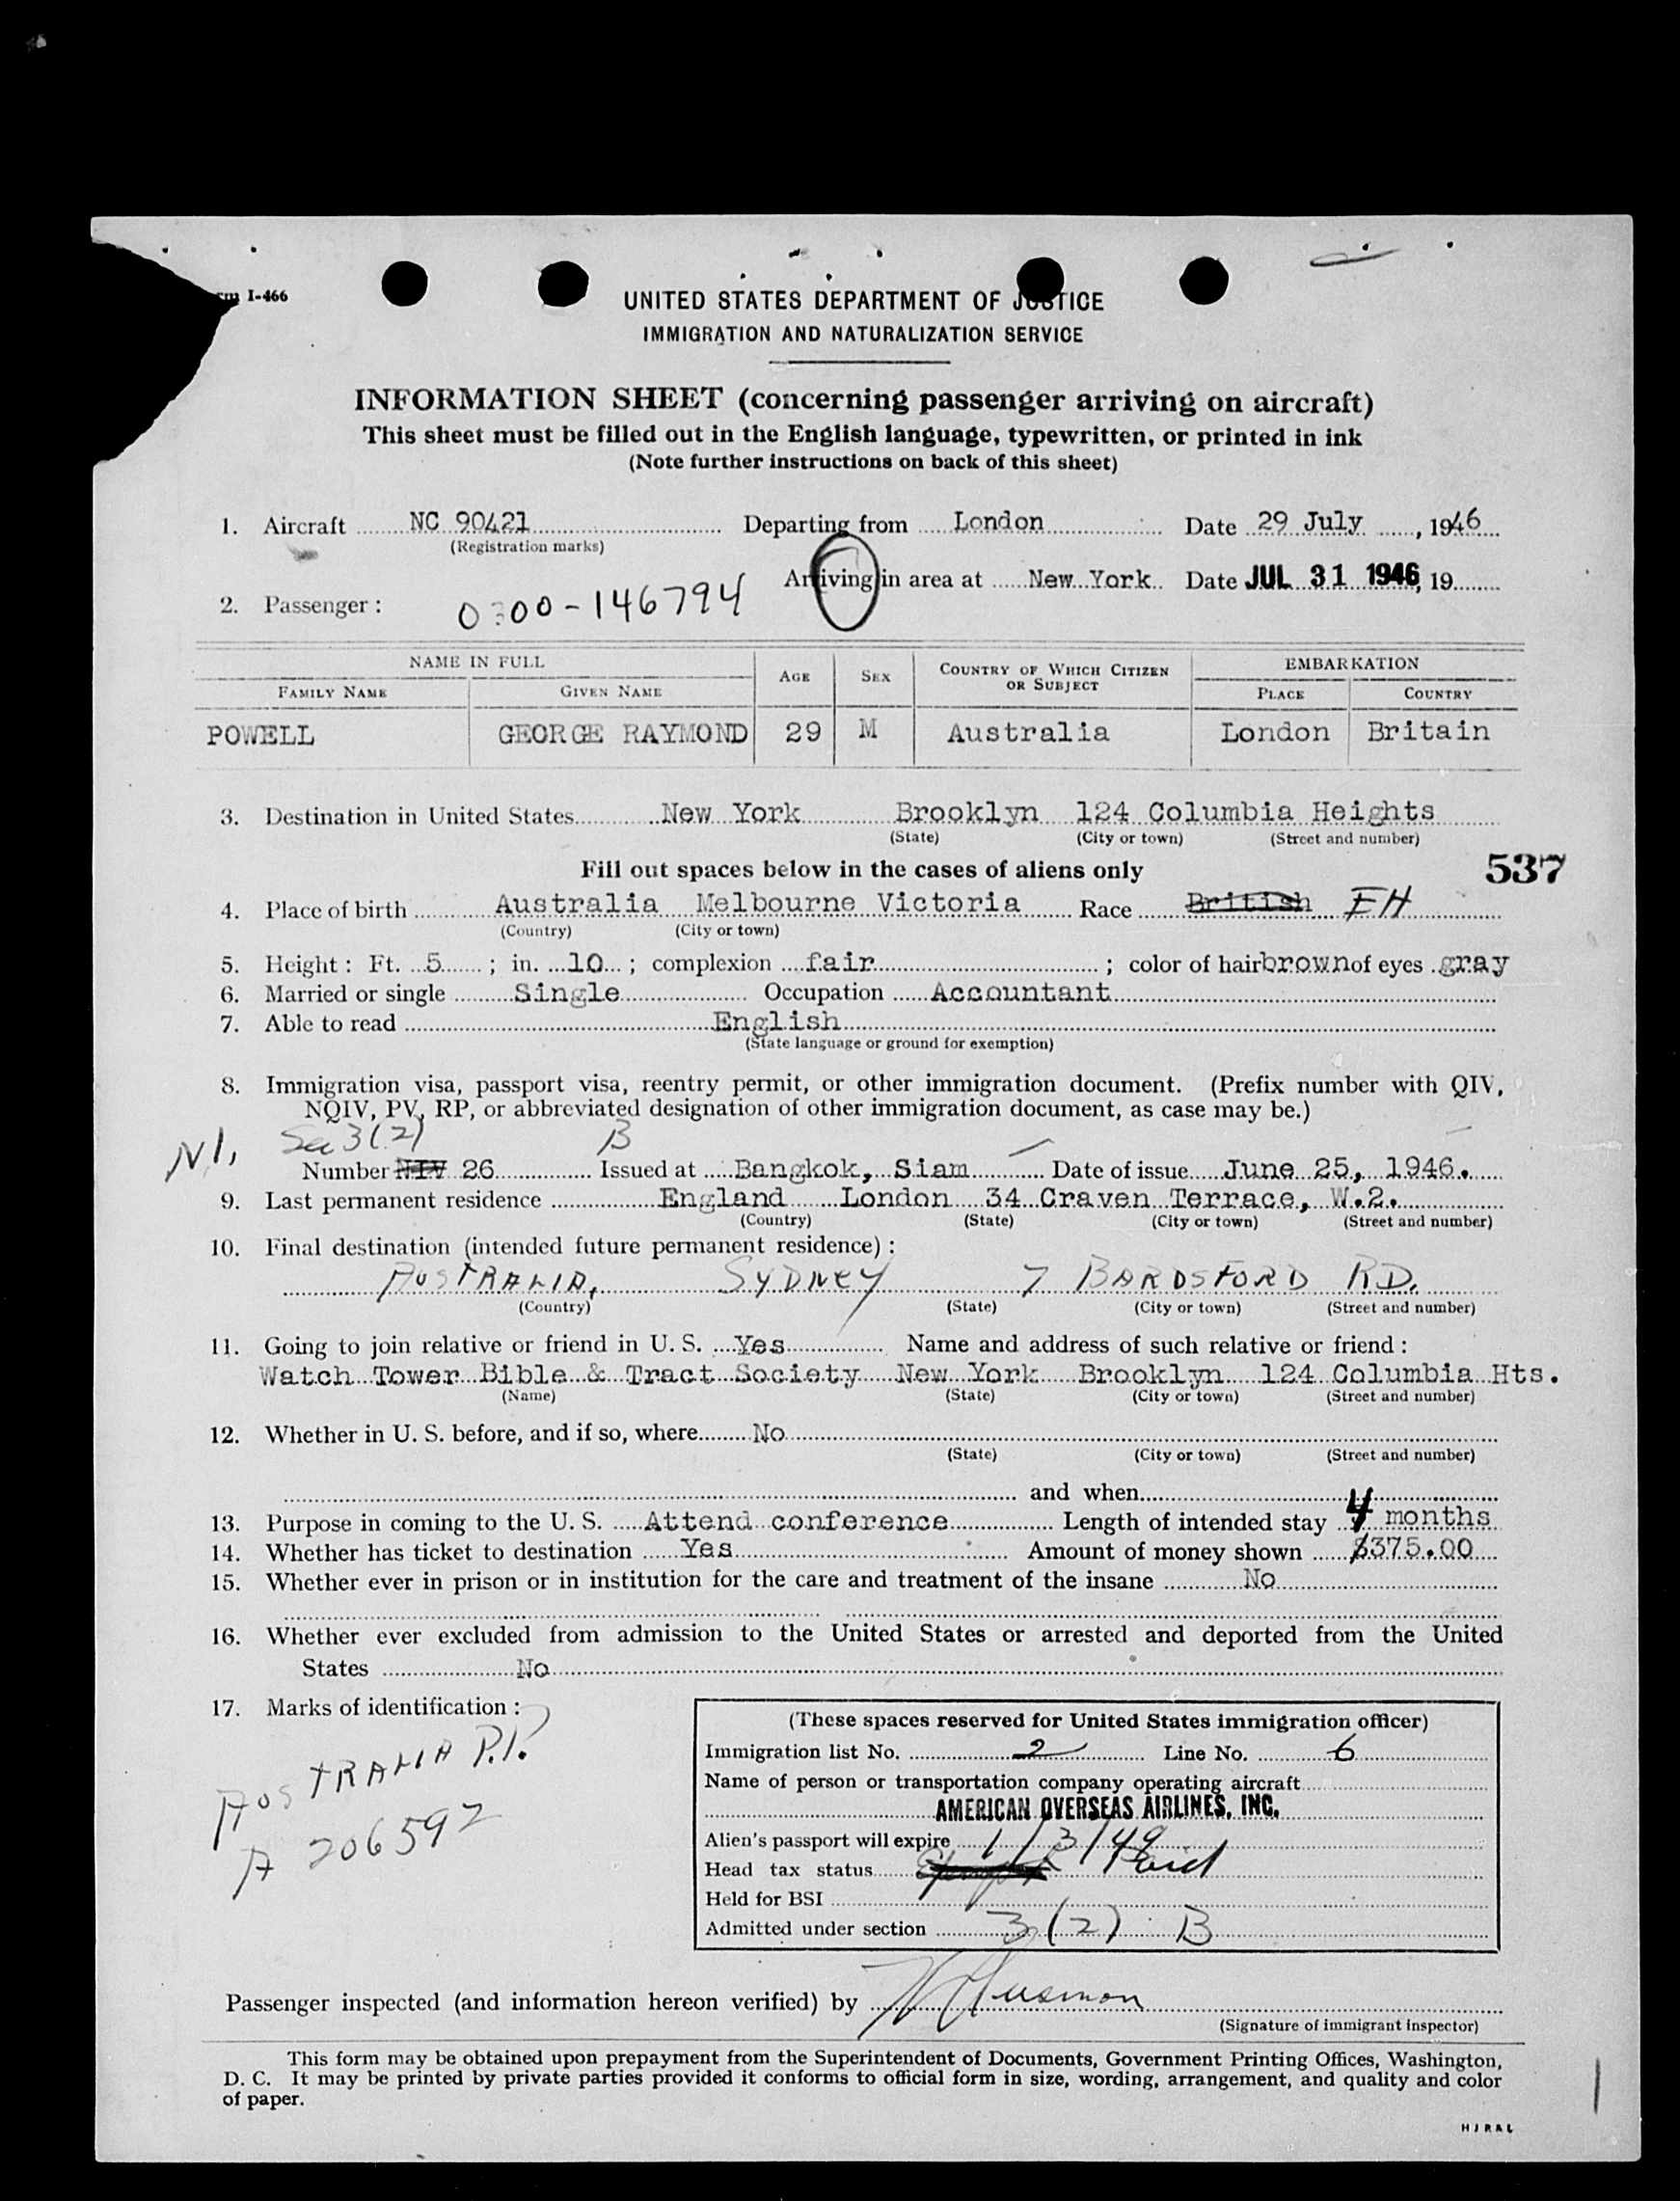 I-466
UNITED STATES DEPARTMENT OF JUSTICE
IMMIGRATION AND NATURALIZATION SERVICE
INFORMATION SHEET (concerning passenger arriving on aircraft)
This sheet must be filled out in the English language, typewritten, or printed in ink
(Note further instructions on back of this sheet)
1. Aircraft NC 90421 Departing from London Date 29 July, 1946
(Registration marks)
Arriving in area at New York Date JUL 31 1946, 19
2. Passenger: 0300-146794
NAME IN FULL AGE SEX COUNTRY OF WHICH CITIZEN OR SUBJECT EMBARKATION
FAMILY NAME GIVEN NAME PLACE COUNTRY
POWELL GEORGE RAYMOND 29 M Australia London Britain
3. Destination in United States New York Brooklyn 124 Columbia Heights
(State) (City or town) (Street and number)
Fill out spaces below in the cases of aliens only 537
4. Place of birth Australia Melbourne Victoria Race British EH
(Country) (City or town)
5. Height: Ft. 5; in. 10; complexion fair; color of hair brown of eyes gray
6. Married or single Single Occupation Accountant
7. Able to read English
(State language or ground for exemption)
8. Immigration visa, passport visa, reentry permit, or other immigration document. (Prefix number with QIV,
NQIV, PV, RP, or abbreviated designation of other immigration document, as case may be.)
N.I. Sec 3(2) B
Number NIV 26 Issued at Bangkok, Siam Date of issue June 25, 1946.
9. Last permanent residence England London 34 Craven Terrace, W.2.
(Country) (State) (City or town) (Street and number)
10. Final destination (intended future permanent residence):
AUSTRALIA, SYDNEY 7 BARDSFORD RD.
(Country) (State) (City or town) (Street and number)
11. Going to join relative or friend in U. S. Yes Name and address of such relative or friend:
Watch Tower Bible & Tract Society New York Brooklyn 124 Columbia Hts.
(Name) (State) (City or town) (Street and number)
12. Whether in U. S. before, and if so, where No
(State) (City or town) (Street and number)
and when
13. Purpose in coming to the U. S. Attend conference Length of intended stay 4 months
14. Whether has ticket to destination Yes Amount of money shown $375.00
15. Whether ever in prison or in institution for the care and treatment of the insane No
16. Whether ever excluded from admission to the United States or arrested and deported from the United
States No
17. Marks of identification:
AUSTRALIA P.P.
A 206592
(These spaces reserved for United States immigration officer)
Immigration list No. 2 Line No. 6
Name of person or transportation company operating aircraft
AMERICAN OVERSEAS AIRLINES, INC.
Alien's passport will expire 1/3/49
Head tax status Paid
Held for BSI
Admitted under section 3(2) B
Passenger inspected (and information hereon verified) by
(Signature of immigrant inspector)
This form may be obtained upon prepayment from the Superintendent of Documents, Government Printing Offices, Washington,
D. C. It may be printed by private parties provided it conforms to official form in size, wording, arrangement, and quality and color
of paper.